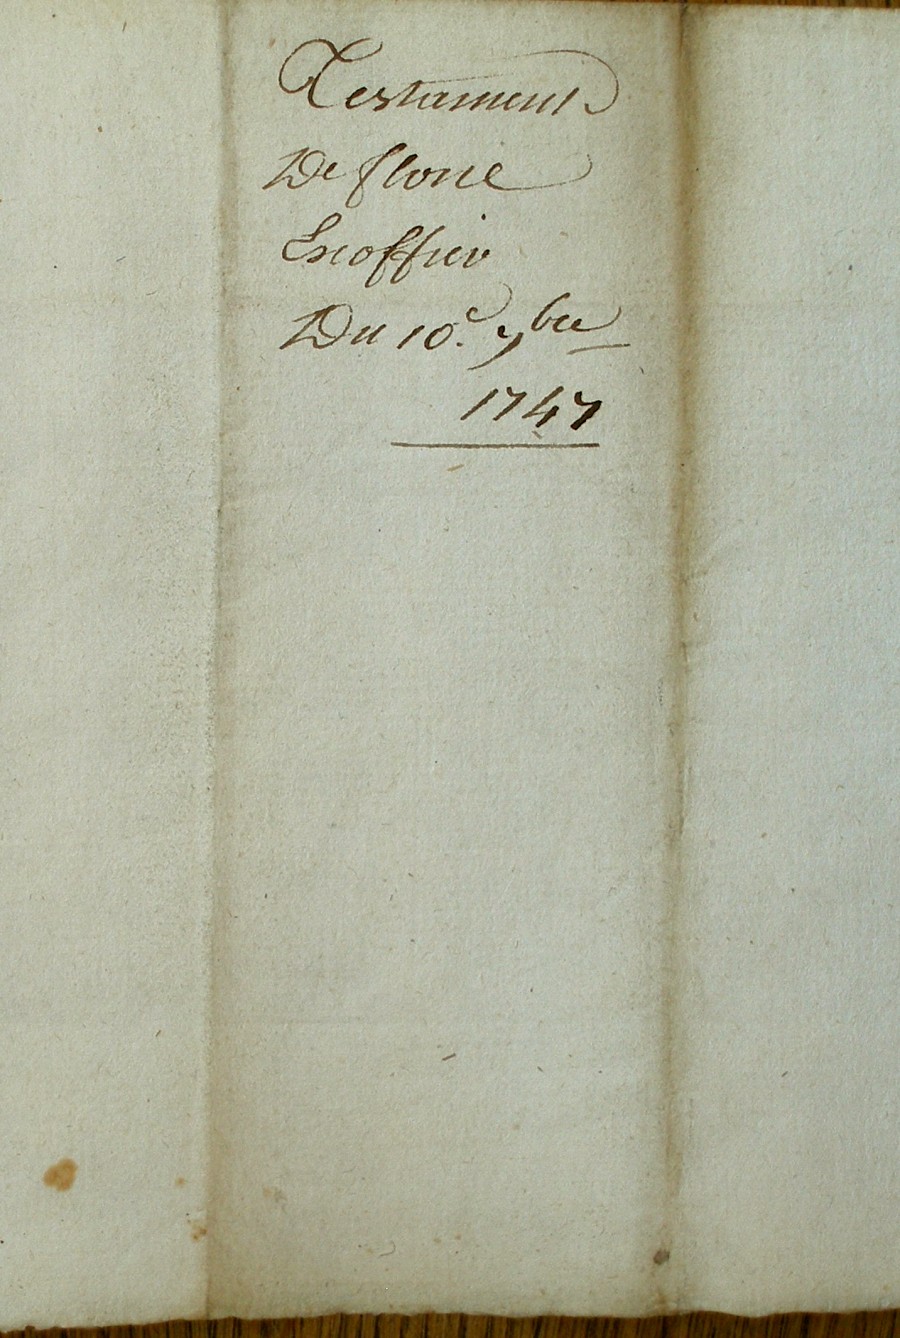 Testament
De florie
Escoffier
Du 10e. 7bre
1747